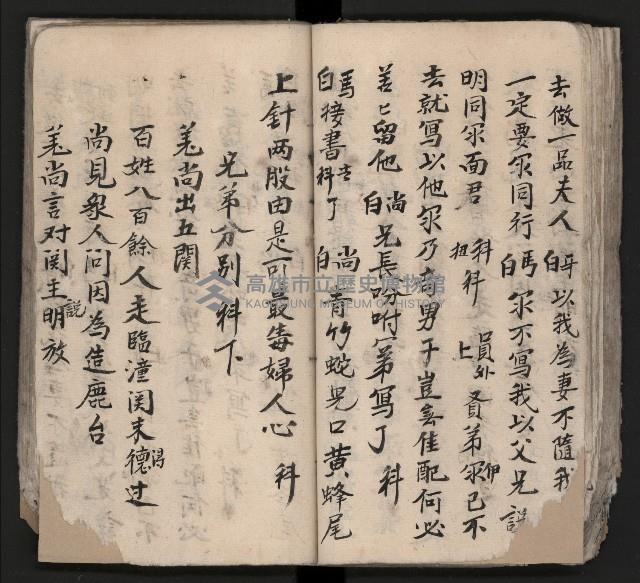 去做一品夫人白以我為妻不隨我
一定要尔同行馬白尔不写我以父兄說
明同尔面君科科上員外賢弟尔己不
去就寫以他尔乃是男子豈無佳配何必
苦匕留他尚白兄長吩咐弟寫了科
馬白接書科了尚白青竹蛇兒口黃蜂尾
上針两股由是可最毒婦人心科
兄弟分別科下
姜尚出五関
百姓八百餘人走臨潼関未德過
尚見衆人问因為造鹿台
姜尚言对関主說明放
高雄市立歷史博物館
KAOHSIUNG MUSEUM OF HISTORY